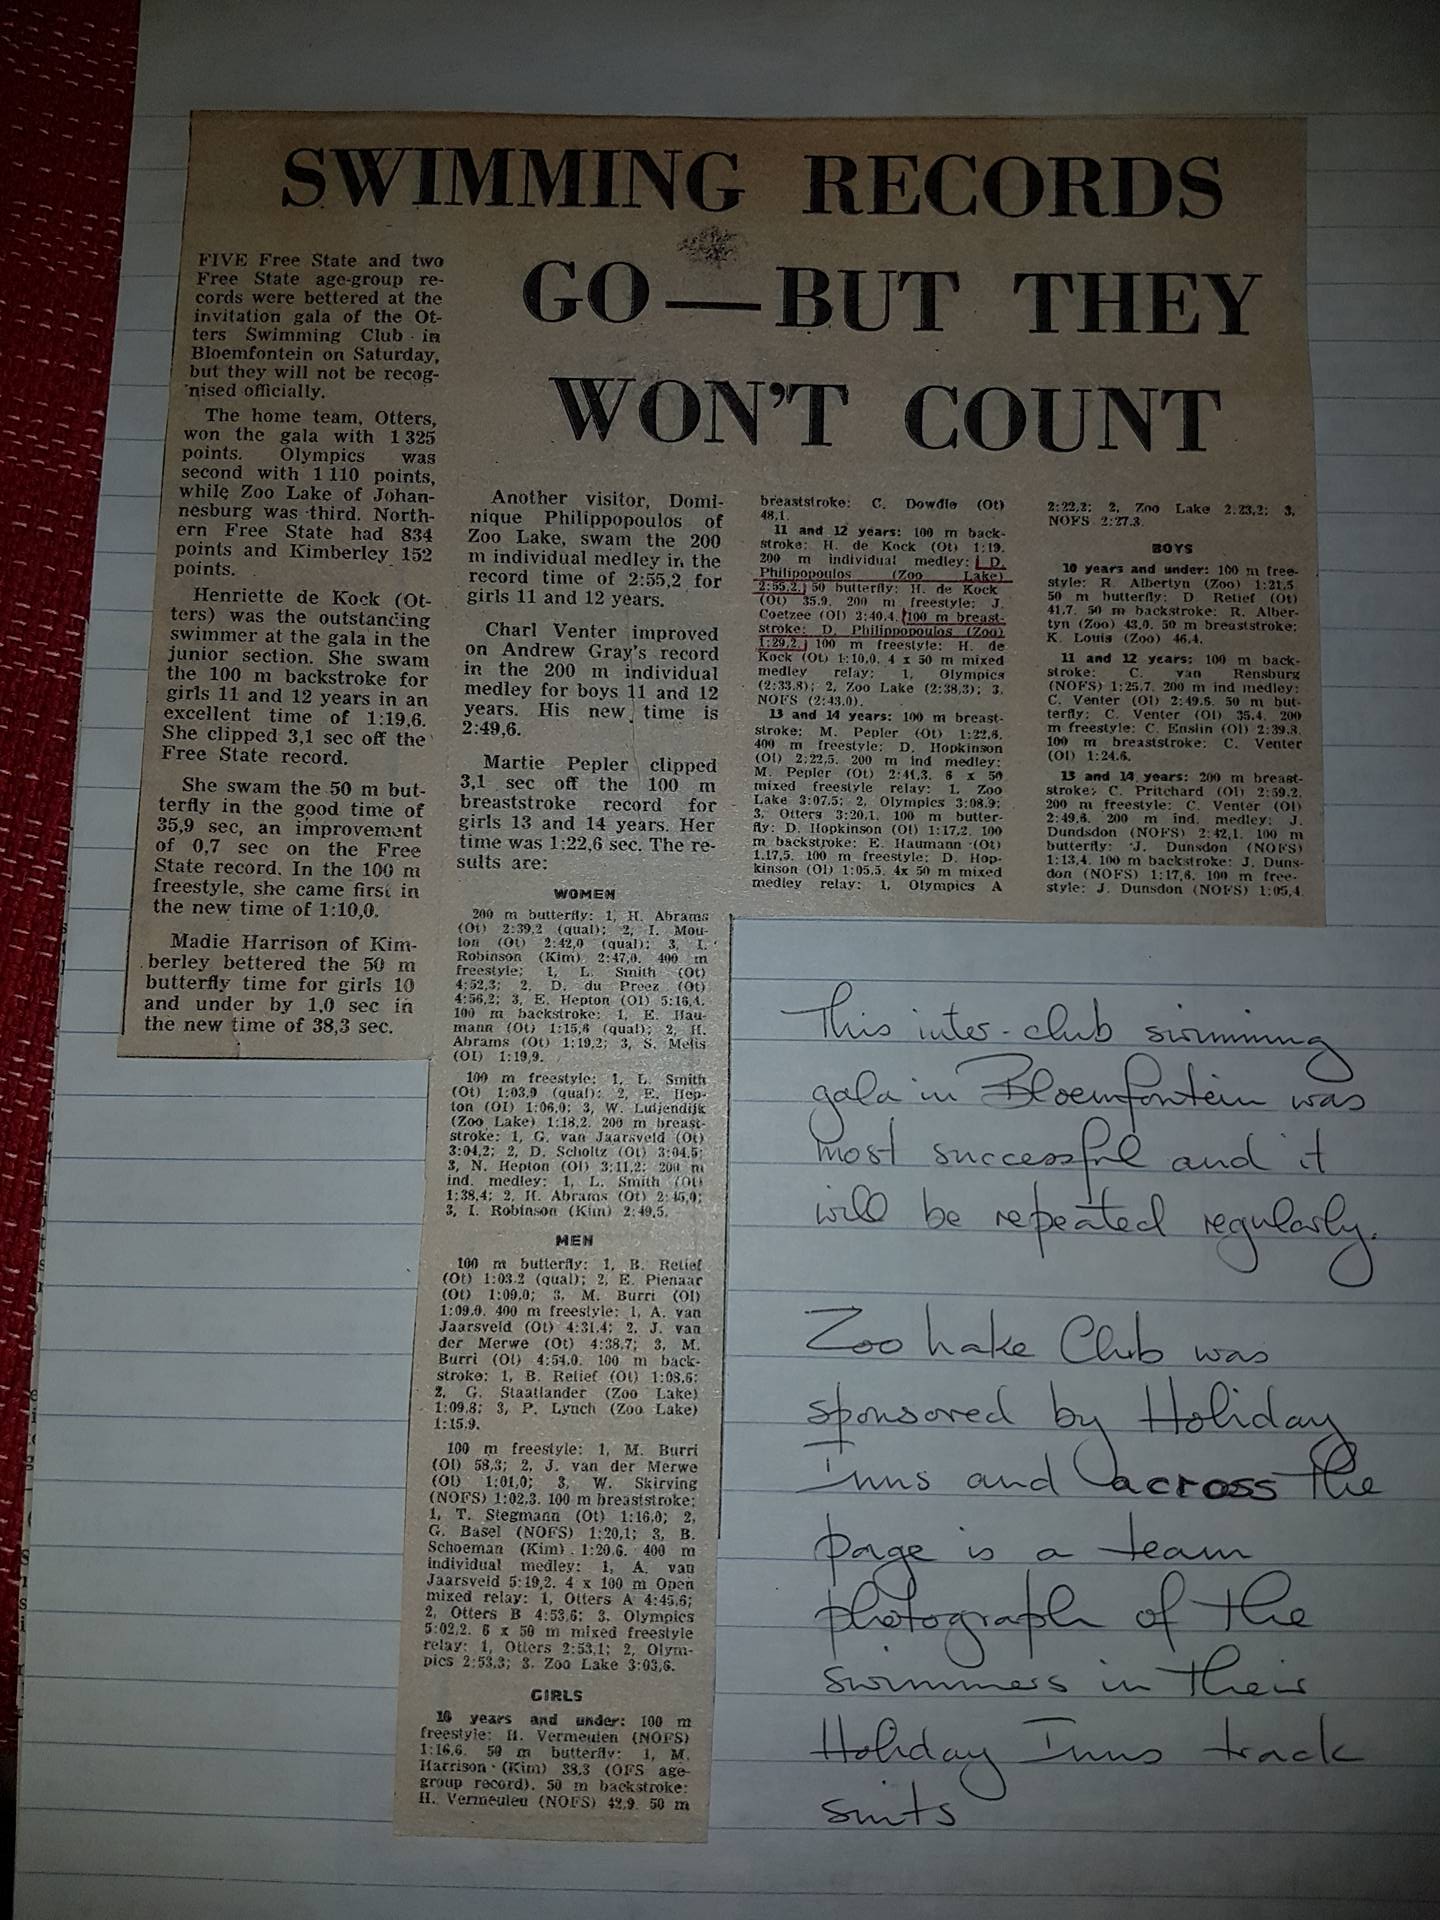 SWIMMING RECORDS
GO — BUT THEY
WON'T COUNT
FIVE Free State and two
Free State age-group re-
cords were bettered at the
invitation gala of the Ot-
ters Swimming Club in
Bloemfontein on Saturday,
but they will not be recog-
nised officially.
The home team, Otters,
won the gala with 1 325
points. Olympics was
second with 1 110 points,
while Zoo Lake of Johan-
nesburg was third. North-
ern Free State had 834
points and Kimberley 152
points.
Henriette de Kock (Ot-
ters) was the outstanding
swimmer at the gala in the
junior section. She swam
the 100 m backstroke for
girls 11 and 12 years in an
excellent time of 1:19,6.
She clipped 3,1 sec off the
Free State record.
She swam the 50 m but-
terfly in the good time of
35,9 sec, an improvement
of 0,7 sec on the Free
State record. In the 100 m
freestyle, she came first in
the new time of 1:10,0.
Madie Harrison of Kim-
berley bettered the 50 m
butterfly time for girls 10
and under by 1,0 sec in
the new time of 38,3 sec.
Another visitor, Domi-
nique Philippopoulos of
Zoo Lake, swam the 200
m individual medley in the
record time of 2:55,2 for
girls 11 and 12 years.
Charl Venter improved
on Andrew Gray's record
in the 200 m individual
medley for boys 11 and 12
years. His new time is
2:49,6.
Martie Pepler clipped
3,1 sec off the 100 m
breaststroke record for
girls 13 and 14 years. Her
time was 1:22,6 sec. The re-
sults are:
WOMEN
200 m butterfly: 1, H. Abrams
(Ot) 2:39,2 (qual); 2, I. Mou-
ton (Ot) 2:42,0 (qual); 3, I.
Robinson (Kim). 2:47,0. 400 m
freestyle; 1, L. Smith (Ot)
4:52,3; 2, D. du Preez (Ot)
4:56,2; 3, E. Hepton (Ol) 5:16,4.
100 m backstroke: 1, E. Hau-
mann (Ot) 1:15,6 (qual); 2, H.
Abrams (Ot) 1:19,2; 3, S. Melis
(Ol) 1:19,9.
100 m freestyle: 1, L. Smith
(Ot) 1:03,9 (qual); 2, E. Hep-
ton (Ol) 1:06,0; 3, W. Luijendijk
(Zoo Lake) 1:18,2. 200 m breast-
stroke: 1, G. van Jaarsveld (Ot)
3:04,2; 2, D. Scholtz (Ot) 3:04,5;
3, N. Hepton (Ol) 3:11,2; 200 m
ind. medley: 1, L. Smith (Ot)
1:38,4; 2, H. Abrams (Ot) 2:45,0;
3, I. Robinson (Kim) 2:49,5.
MEN
100 m butterfly: 1, B. Retief
(Ot) 1:03.2 (qual); 2, E. Pienaar
(Ot) 1:09,0; 3, M. Burri (Ol)
1:09.0. 400 m freestyle: 1, A. van
Jaarsveld (Ot) 4:31.4; 2, J. van
der Merwe (Ot) 4:38.7; 3, M.
Burri (Ol) 4:54.0. 100 m back-
stroke: 1, B. Retief (Ot) 1:08.6;
2, G. Staatlander (Zoo Lake)
1:09.8; 3, P. Lynch (Zoo Lake)
1:15.9.
100 m freestyle: 1, M. Burri
(Ol) 58,3; 2, J. van der Merwe
(Ol) 1:01,0; 3, W. Skirving
(NOFS) 1:02.3. 100 m breaststroke;
1, T. Stegmann (Ot) 1:16.0; 2,
G. Basel (NOFS) 1:20,1; 3, B.
Schoeman (Kim) 1:20.6. 400 m
individual medley: 1, A. van
Jaarsveld 5:19,2. 4 x 100 m Open
mixed relay: 1, Otters A 4:45.6;
2, Otters B 4:53.6; 3, Olympics
5:02.2. 6 x 50 m mixed freestyle
relay: 1, Otters 2:53,1; 2, Olym-
pics 2:53,3; 3. Zoo Lake 3:03,6.
GIRLS
10 years and under: 100 m
freestyle: H. Vermeulen (NOFS)
1:16,6. 50 m butterfly: 1, M.
Harrison (Kim) 38.3 (OFS age-
group record). 50 m backstroke:
H. Vermeulen (NOFS) 42,9. 50 m
breaststroke: C. Dowdle (Ot)
48,1.
11 and 12 years: 100 m back-
stroke: H. de Kock (Ot) 1:19.
200 m individual medley: D.
Philipopoulos (Zoo Lake)
2:55,2. 50 butterfly: H. de Kock
(Ot) 35.9. 200 m freestyle: J.
Coetzee (Ol) 2:40,4. 100 m breast-
stroke: D. Philippopoulos (Zoo)
1:29,2. 100 m freestyle: H. de
Kock (Ot) 1:10,0. 4 x 50 m mixed
medley relay: 1, Olympics
(2:33.8); 2, Zoo Lake (2:38,3); 3.
NOFS (2:43.0).
13 and 14 years: 100 m breast-
stroke: M. Pepler (Ot) 1:22,6.
400 m freestyle: D. Hopkinson
(Ol) 2:22,5. 200 m ind medley:
M. Pepler (Ot) 2:41,3. 6 x 50
mixed freestyle relay: 1. Zoo
Lake 3:07,5; 2, Olympics 3:08,9;
3, Otters 3:20,1. 100 m butter-
fly: D. Hopkinson (Ol) 1:17,2. 100
m backstroke: E. Haumann (Ot)
1.17,5. 100 m freestyle: D. Hop-
kinson (Ol) 1:05,5. 4x 50 m mixed
medley relay: 1, Olympics A
2:22,2; 2, Zoo Lake 2:23,2; 3,
NOFS 2:27.3.
BOYS
10 years and under: 100 m free-
style: R. Albertyn (Zoo) 1:21,5.
50 m butterfly: D. Relief (Ot)
41.7. 50 m backstroke: R. Alber-
tyn (Zoo) 43.0. 50 m breaststroke;
K. Louis (Zoo) 46,4.
11 and 12 years: 100 m back-
stroke: C. van Rensburg
(NOFS) 1:25.7. 200 m ind medley:
C. Venter (Ol) 2:49.6. 50 m but-
terfly: C. Venter (Ol) 35.4. 200
m freestyle: C. Enslin (Ol) 2:39.3.
100 m breaststroke: C. Venter
(Ol) 1:24.6.
13 and 14 years: 200 m breast-
stroke; C. Pritchard (Ol) 2:59.2.
200 m freestyle: C. Venter (Ol)
2:49.6. 200 m ind. medley: J.
Dundsdon (NOFS) 2:42,1. 100 m
butterfly: J. Dunsdon (NOFS)
1:13,4. 100 m backstroke: J. Duns-
don (NOFS) 1:17,6. 100 m free-
style: J. Dunsdon (NOFS) 1:05,4.
This inter-club swimming
gala in Bloemfontein was
most successful and it
will be repeated regularly.
Zoo Lake Club was
sponsored by Holiday
Inns and across the
page is a team
photograph of the
swimmers in their
Holiday Inns track
suits